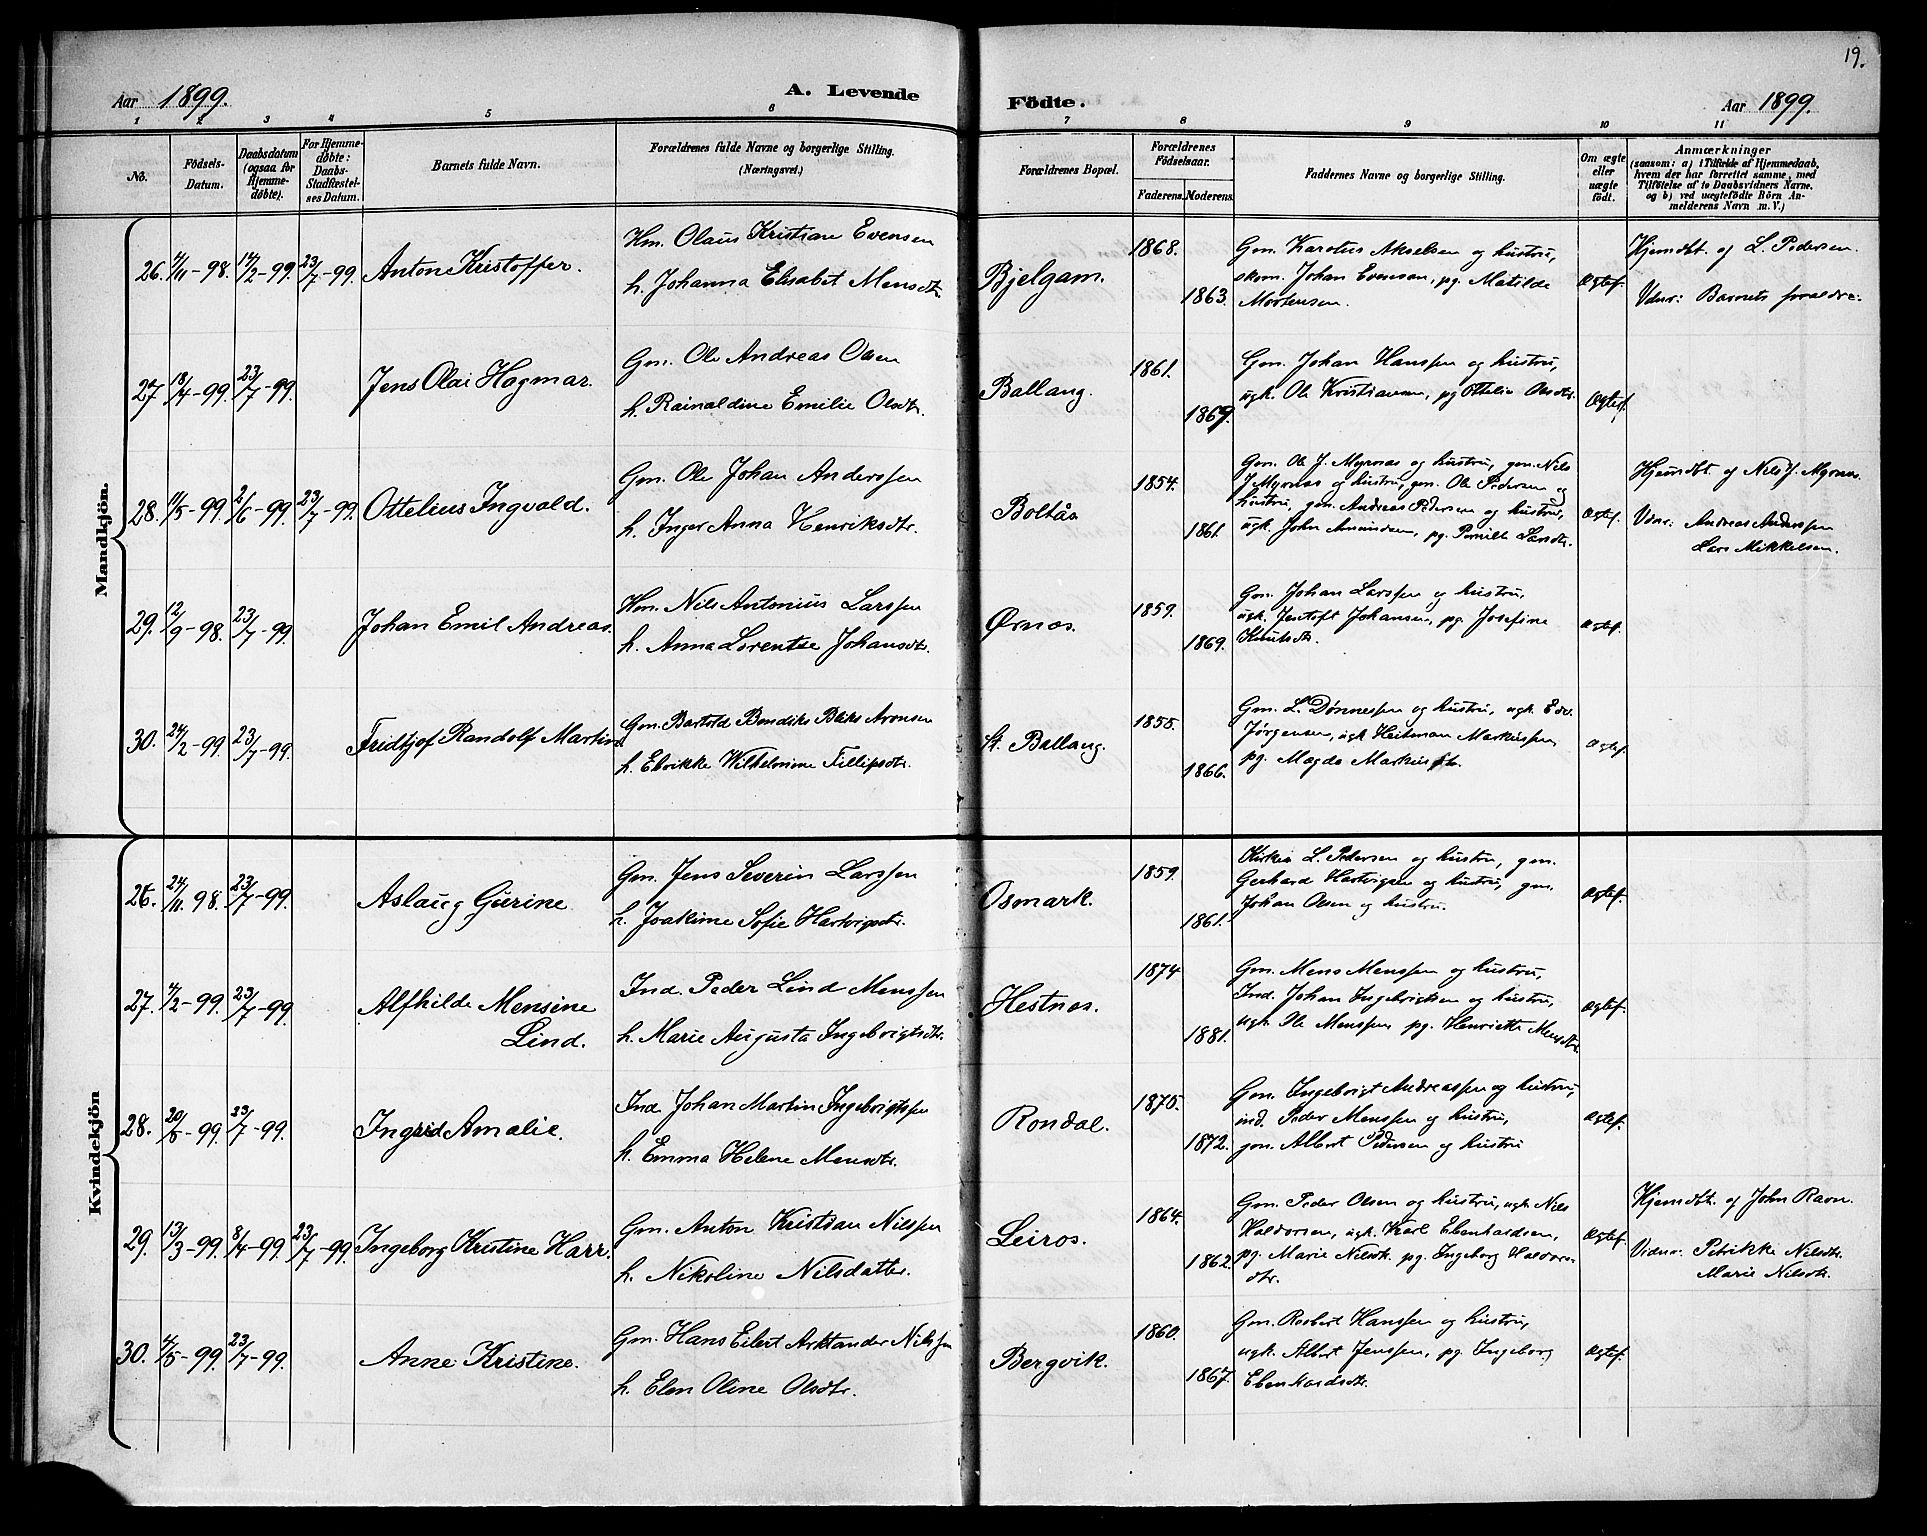 19.
Aar 1899.
A. Levende
Födte.
Aar 1899.
1 2 3 4 5 6 7 8 9 10 11
No.
Födsels-
Datum.
Daabsdatum
(ogsaa for
Hjemme-
döbte).
For Hjemme-
døbte:
Daabs-
Stadfæstel-
ses Datum.
Barnets fulde Navn.
Forældrenes fulde Navne og borgerlige Stilling.
(Næringsvei.)
Forældrenes Bopæl.
Forældrenes
Födselsaar.
Faderens. Moderens.
Faddernes Navne og borgerlige Stilling.
Om ægte
eller
uægte
födt.
Anmærkninger
(saasom: a) i Tilfælde af Hjemmedaab,
hvem der har forrettet samme, med
Tilföielse af to Daabsvidners Navne,
og b) ved uægtefödte Börn An-
melderens Navn m. V.)
Mandkjön.
26. 4/11-98. 14/2-99. 23/7-99. Anton Kristoffer.
Hm. Olaus Kristian Evensen
h. Johanna Elisabet Mensdtr.
Bjelgam.
1868.
1863.
Gm. Karotus Akselsen og hustru,
skom. Johan Evensen, pg. Matilde
Mortensen.
Ægtef.
Hjemdbt. af L. Pedersen.
Vidnr: Barnets forældre.
27 18/4-99. 23/7-99. Jens Olai Hagmar.
Gm. Ole Andreas Olsen
h. Rainaldine Emilie Olsdtr.
Ballang.
1861.
1869.
Gm. Johan Hanssen og hustru,
ugk. Ole Kristiansen, pg Ottelie Olsdtr.
Ægtef.
28. 11/5-99. 2/6-99. 23/7-99. Ottelius Ingvald.
Gm. Ole Johan Anderssen
h. Inger Anna Henriksdtr.
Boltås
1854.
1861.
Gm. Ole J. Myrnæs og hustru, gm. Nils
J Myrnæs og hustru, gm. Ole Pedersen og
hustru, gm. Andreas Pedersen og hustru,
ugk. John Amundsen, pg. Pernille Larsdtr.
Ægtef.
Hjemdbt. af Nils J. Myrnæs
Vidnr: Andreas Anderssen
Lars Mikkelsen.
29. 12/9-98. 23/7-99. Johan Emil Andreas.
Hm. Nils Antonius Larssen
h. Anna Lorentse Johansdtr.
Ørnes.
1859.
1869.
Gm. Johan Larssen og hustru,
ugk. Jentoft Johansen, pg. Josefine
Knutsdtr.
Ægtef.
30. 24/2-99. 23/7-99. Fridtjof Randolf Martin
Gm. Bartold Bendiks Bliks Aronsen
h. Elvikke Wilhelmine Fillipsdtr.
St. Ballang.
1855.
1866.
Gm. L. Dønnessen og hustru, ugk. Edv.
Jørgensen, ugk Heitman Markussen
pg. Magda Markusdtr.
Ægtef.
Kvindekjön
26. 24/11 98. 23/7-99. Aslaug Gurine
Gm. Jens Severin Larssen
h. Joakime Sofie Hartvigsdtr.
Osmark.
1859.
1861.
L. Pedersen og hustru, gm.
Gerhard Hartvigsen og hustru, gm.
Johan Olsen og hustru.
Ægtef.
27. 4/2-99. 23/7-99. Alfhilde Mensine
Lind.
Ind. Peder Lind Menssen
h. Marie Augusta Ingebrigtsdtr.
Hestnes.
1874
1881.
Gm. Mens Menssen og hustru,
Ind. Johan Ingebrigtsen og hustru,
ugk. Ole Menssen pg. Henriette Mensdtr.
Ægtef.
28. 20/5-99. 23/7-99. Ingrid Amalie.
Ind Johan Martin Ingebrigtssen
h. Emma Helene Mensdtr.
Rondal.
1875.
1872.
Gm. Ingebrigt Andreassen og hustru,
ind. Peder Menssen og hustru,
gm. Albert Pedersen og hustru
Ægtef.
29. 13/3-99. 8/4-99. 23/7-99. Ingeborg Kristine Harr.
Gm. Anton Kristian Nilssen
h. Nikoline Nilsdatter.
Leiros.
1864.
1862.
Gm. Peder Olsen og hustru, ugk. Nils
Haldorsen, ugk. Karl Ebenhardsen,
pg. Marie Nilsdtr. pg. Ingeborg Haldors-
dtr.
Ægtef.
Hjemdbt. af John Ravn.
Vidnr. Petrikke Nilsdtr.
Marie Nilsdtr.
30. 4/5-99. 23/7-99. Anne Kristine.
Gm. Hans Eilert Arktander Nilssen
h. Elen Oline Olsdtr.
Bergvik.
1860.
1867.
Gm. Robert Hanssen og hustru,
ugk. Albert Jenssen, pg. Ingeborg
Ebenhardsdtr.
Ægtef.